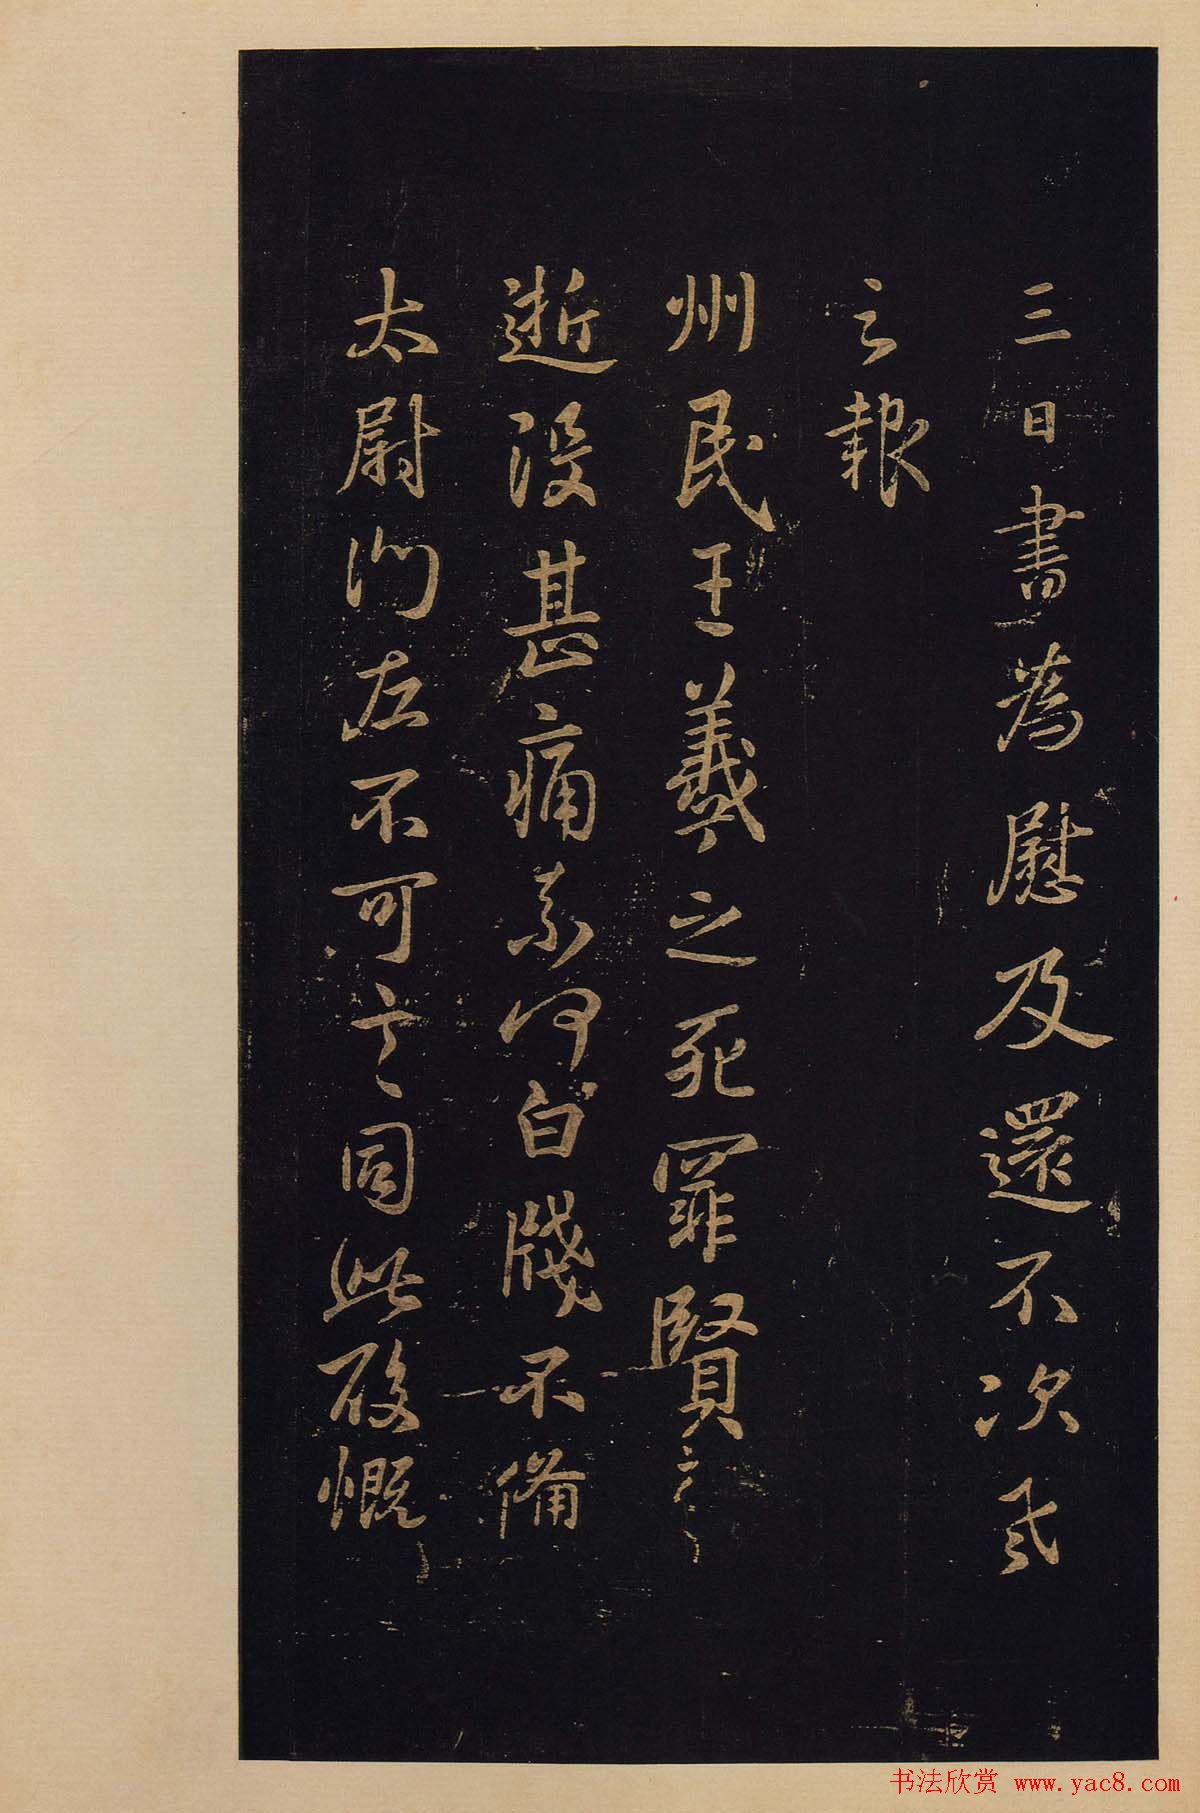 三日書為慰及還不次
之報
州民王羲之死罪賢
逝没甚痛奈何白牋不備
太尉門左不可言同此慨
书法欣赏 www.yac8.com